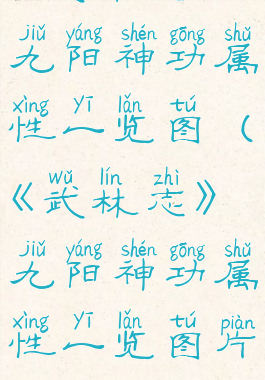 jiǔ yáng shén gōng shǔ
九阳神功属
xìng yī lǎn tú
性一览图（
wǔ lín zhì
《武林志》
jiǔ yáng shén gōng shǔ
九阳神功属
xìng yī lǎn tú piàn
性一览图片